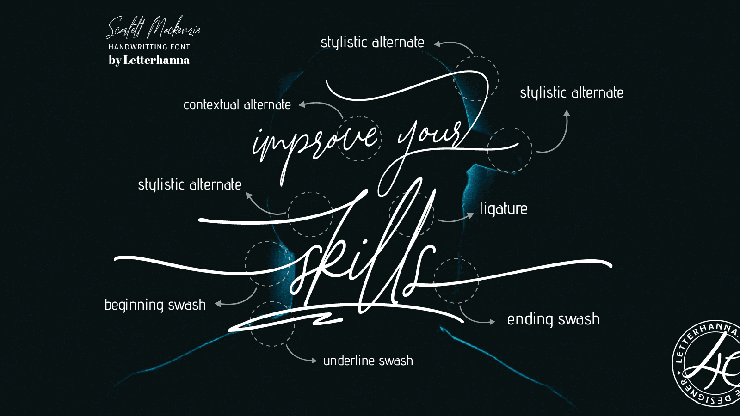 Scarlett Mackenzie
HANDWRITTING FONT
by Letterhanna
stylistic alternate
stylistic alternate
contextual alternate
improve your
stylistic alternate
ligature
skills
beginning swash
ending swash
underline swash
LETTERHANNA
DESIGNER